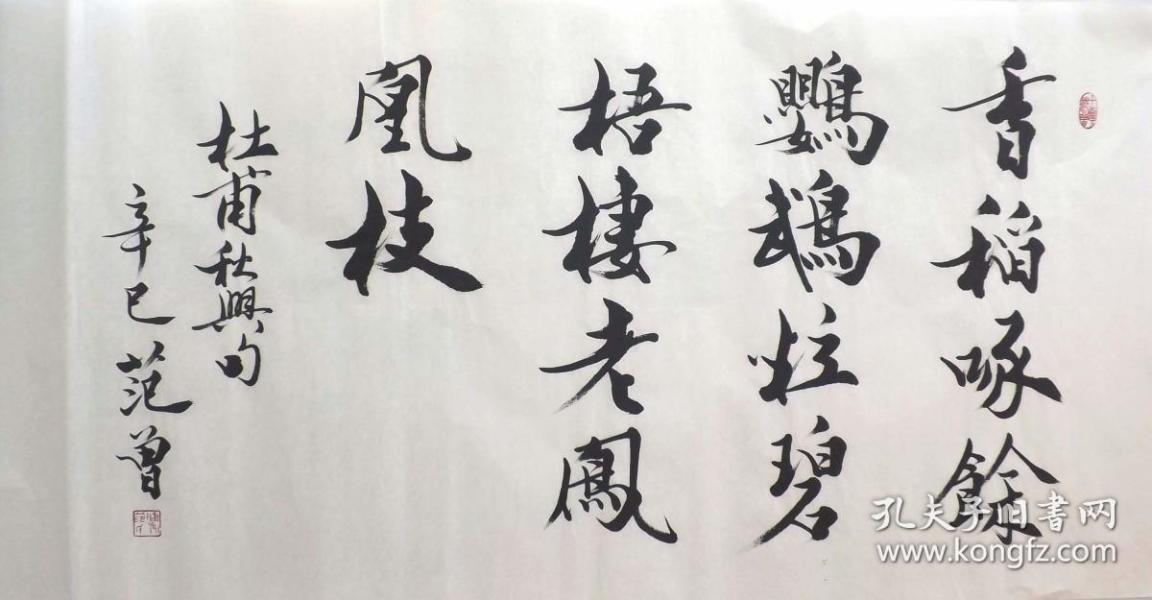 香稻啄餘
鸚鵡粒碧
梧棲老鳳
凰枝
杜甫秋興句
辛巳范曾
孔夫子旧书网
www.kongfz.com